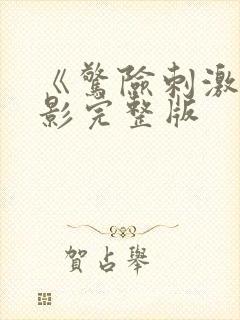 《驚險刺激
影完整版
賀占舉